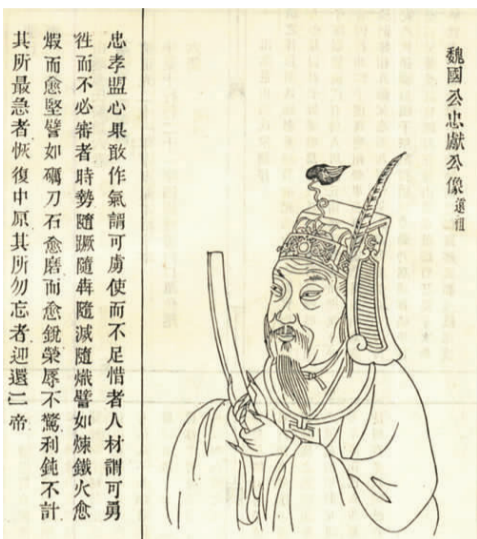 魏國公忠獻公像 道祖
忠孝盟心果敢作氣謂可虜使而不足惜者人材謂可勇
徃而不必審者時勢隨蹶隨犇隨滅隨熾譬如煉鐵火愈
煆而愈堅譬如礪刀石愈磨而愈銳榮辱不驚利鈍不計
其所最急者恢復中原其所勿忘者迎還二帝